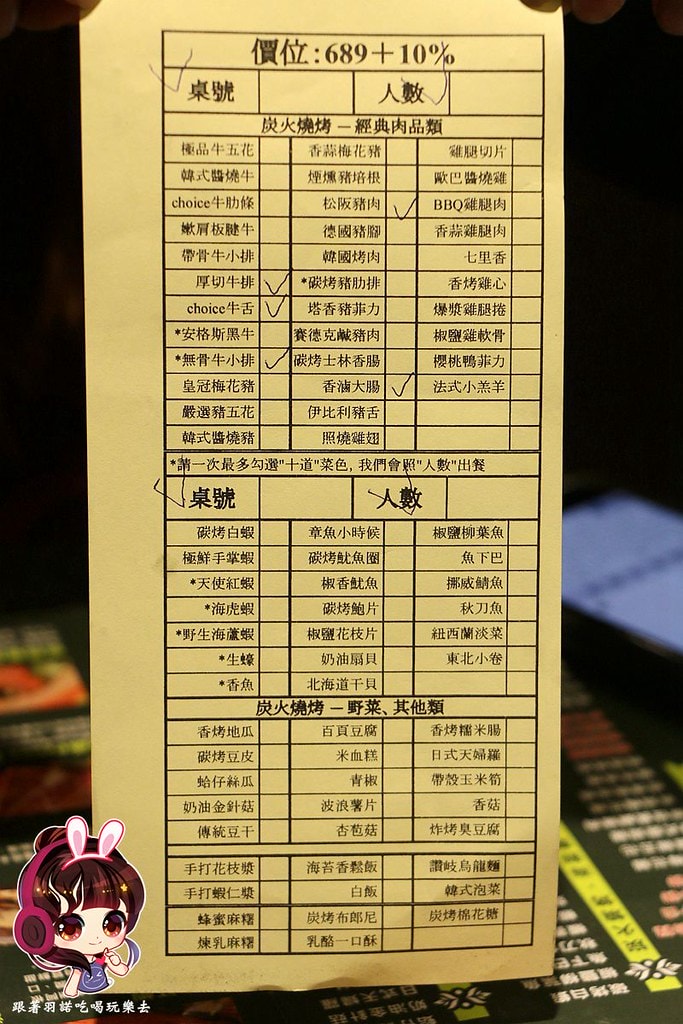 價位:689＋10%
桌號 人數
炭火燒烤 － 經典肉品類
極品牛五花 香蒜梅花豬 雞腿切片
韓式醬燒牛 煙燻豬培根 歐巴醬燒雞
choice牛肋條 松阪豬肉 BBQ雞腿肉
嫩肩板腱牛 德國豬腳 香蒜雞腿肉
帶骨牛小排 韓國烤肉 七里香
厚切牛排 *碳烤豬肋排 香烤雞心
choice牛舌 塔香豬菲力 爆漿雞腿捲
*安格斯黑牛 賽德克鹹豬肉 椒鹽雞軟骨
*無骨牛小排 碳烤士林香腸 櫻桃鴨菲力
皇冠梅花豬 香滷大腸 法式小羔羊
嚴選豬五花 伊比利豬舌
韓式醬燒豬 照燒雞翅
*請一次最多勾選"十道"菜色, 我們會照"人數"出餐
桌號 人數
碳烤白蝦 章魚小時候 椒鹽柳葉魚
極鮮手掌蝦 碳烤魷魚圈 魚下巴
*天使紅蝦 椒香魷魚 挪威鯖魚
*海虎蝦 碳烤鮑片 秋刀魚
*野生海蘆蝦 椒鹽花枝片 紐西蘭淡菜
*生蠔 奶油扇貝 東北小卷
*香魚 北海道干貝
炭火燒烤 － 野菜、其他類
香烤地瓜 百頁豆腐 香烤糯米腸
碳烤豆皮 米血糕 日式天婦羅
蛤仔絲瓜 青椒 帶殼玉米筍
奶油金針菇 波浪薯片 香菇
傳統豆干 杏苞菇 炸烤臭豆腐
手打花枝漿 海苔香鬆飯 讚岐烏龍麵
手打蝦仁漿 白飯 韓式泡菜
蜂蜜麻糬 炭烤布郎尼 炭烤棉花糖
煉乳麻糬 乳酪一口酥
跟著羽諾吃喝玩樂去